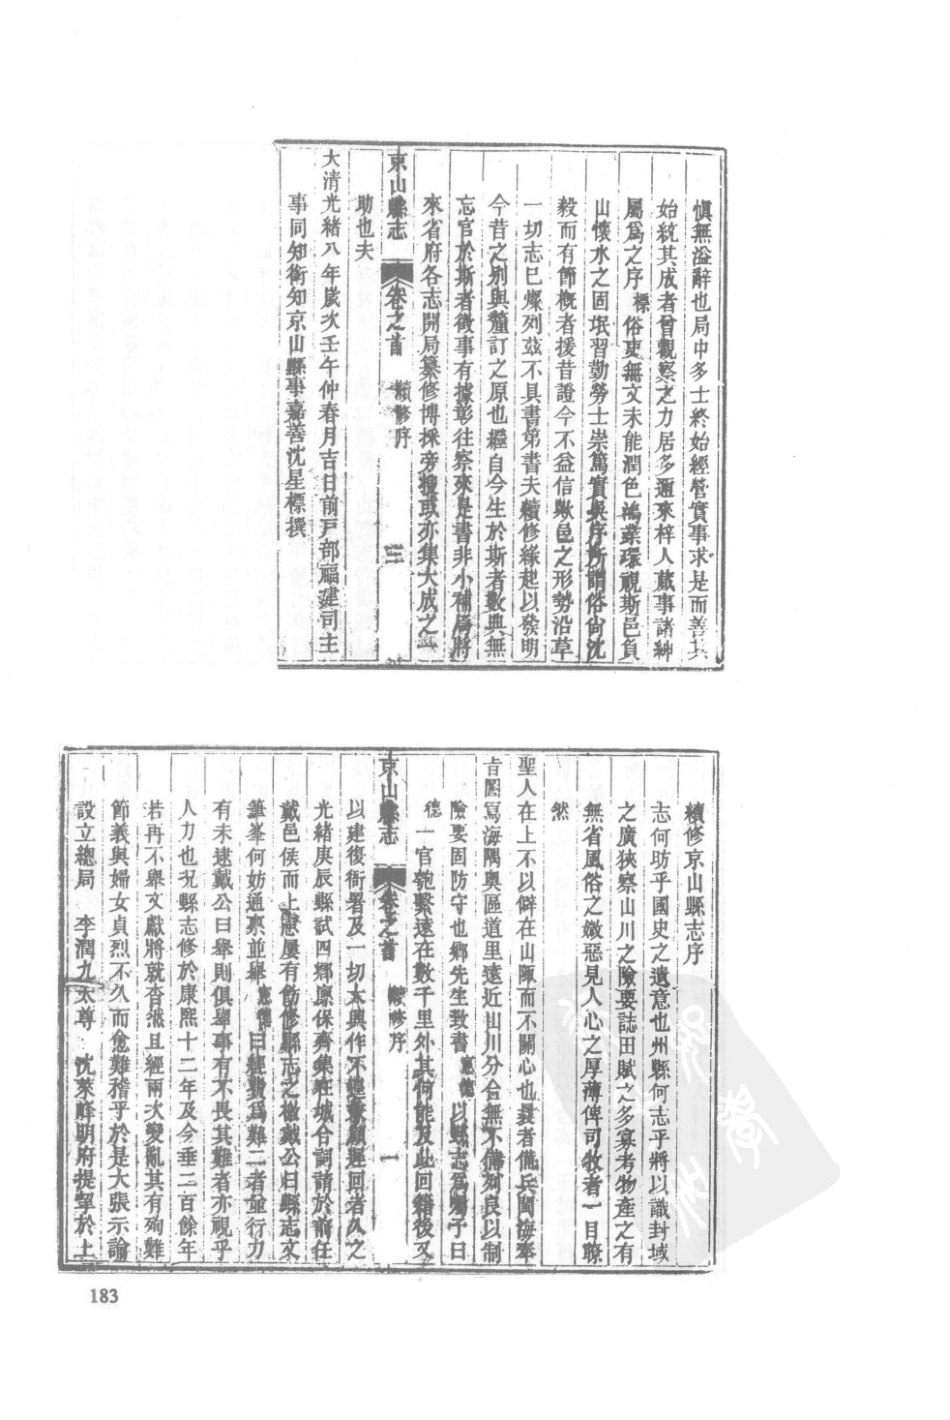 慎無溢辭也局中多士終始經營實事求是而善其
始統其成者曾觀察之力居多邇來梓人蕆事諸紳
屬為之序標俗吏無文未能潤色鴻業環視斯邑負
山懷水之固氓習勤勞士崇篤實與序所謂俗尚沈
毅而有節概者援昔證今不益信歟邑之形勢沿革
一切志已燦列茲不具書第書夫續修緣起以發明
今昔之別與釐訂之原也繼自今生於斯者數典無
忘官於斯者徵事有據彰往察來是書非小補焉將
來省府各志開局纂修博採旁搜或亦集大成之一
京山縣志 卷之首 續修序 三
助也夫
大清光緒八年歲次壬午仲春月吉日前戸部福建司主
事同知銜知京山縣事嘉善沈星標撰
續修京山縣志序
志何昉乎國史之遺意也州縣何志乎將以識封域
之廣狹察山川之險要誌田賦之多寡考物產之有
無省風俗之媺惡見人心之厚薄俾司牧者一目瞭
然
聖人在上不以僻在山陬而不關心也曩者備兵閩海奉
旨圖寫海隅輿區道里遠近山川分合無不備列良以制
險要固防守也鄉先生致書憲德以縣志為囑予曰
德一官匏繫遠在數千里外其何能及此回籍後又
京山縣志 卷之首 續修序 一
以建復衙署及一切大興作不遑兼顧遲回者久之
光緒庚辰縣試四鄉廩保齊集在城合詞請於前任
戴邑侯而上憲屢有飭修縣志之檄戴公曰縣志文
筆峯何妨通稟並舉憲德曰經費為難二者並行力
有未逮戴公曰舉則俱舉事有不畏其難者亦視乎
人力也況縣志修於康熙十二年及今垂二百餘年
若再不舉文獻將就杳茫且經兩次變亂其有殉難
節義與婦女貞烈不久而愈難稽乎於是大張示諭
設立總局 李潤九太尊 沈萊峰明府提挈於上
183